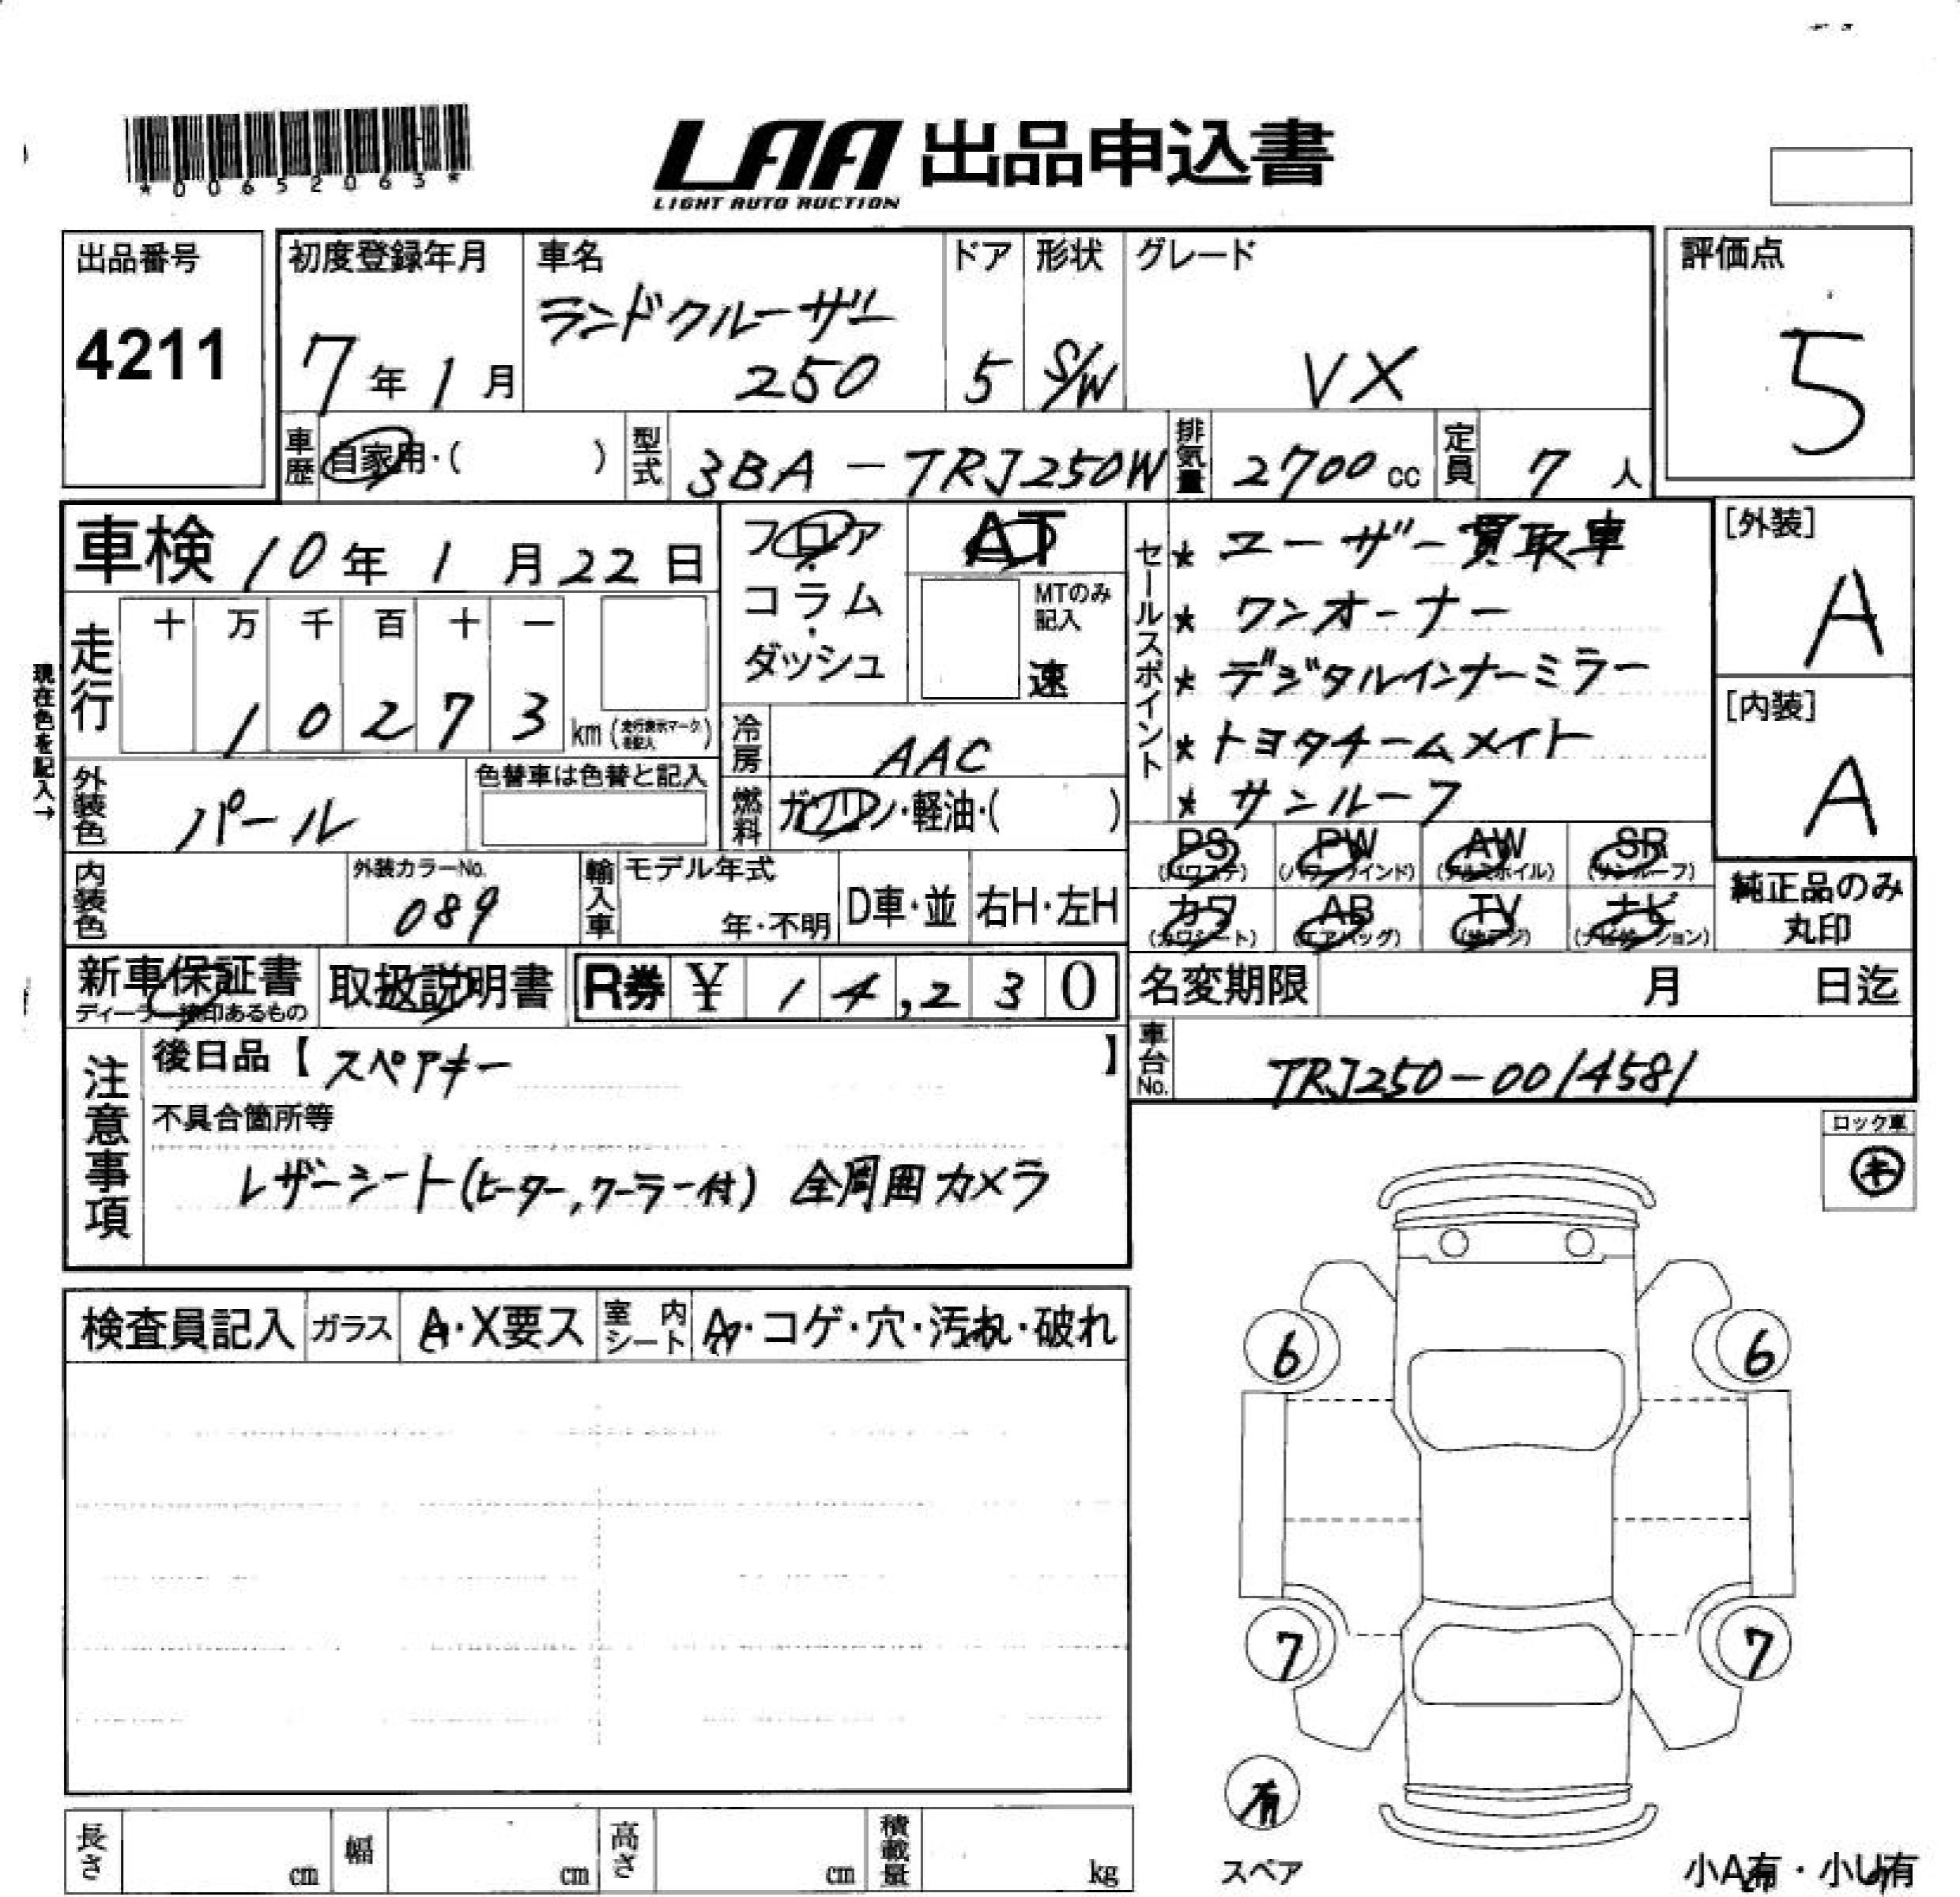 *00652063*
LAA 出品申込書
LIGHT AUTO AUCTION
出品番号
4211
初度登録年月
7年1月
車名
ランドクルーザー
250
ドア
5
形状
S/W
グレード
VX
評価点
5
車歴
自家用・( )
型式
3BA-TRJ250W
排気量
2700cc
定員
7人
車検 10年1月22日
フロア
・
コラム
・
ダッシュ
AT
MTのみ
記入
速
セールスポイント
★ ユーザー買取車
★ ワンオーナー
★ デジタルインナーミラー
★ トヨタチームメイト
★ サンルーフ
[外装]
A
[内装]
A
現在色を記入→
走行
十 万 千 百 十 一
1 0 2 7 3 km(走行表示マークを記入)
冷房
AAC
外装色
パール
色替車は色替と記入
燃料
ガソリン・軽油・( )
PS
(パワステ)
PW
(パワーウインド)
AW
(アルミホイル)
SR
(サンルーフ)
カワ
(カワシート)
AB
(エアバッグ)
TV
(地デジ)
ナビ
(ナビゲーション)
純正品のみ
丸印
内装色
外装カラーNo.
089
輸入車
モデル年式
年・不明
D車・並
右H・左H
新車保証書
取扱説明書
R券 ¥ 14,230
名変期限 月 日迄
車台No.
TRJ250-0014581
注意事項
後日品【 スペアキー 】
不具合箇所等
レザーシート(ヒーター,クーラー付) 全周囲カメラ
ロック車
キ
検査員記入
ガラス
A・X要ス
室内シート
・コゲ・穴・汚れ・破れ
6
6
7
7
有
スペア
長さ cm
幅 cm
高さ cm
積載量 kg
小A有・小U有